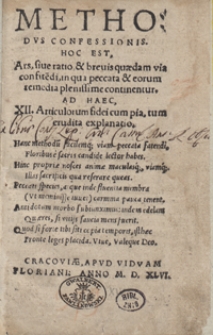 METHO-
DVS CONFESSIONIS.
HOC EST,
Ars, siue ratio & breuis quædam via
confitēdi, in qua peccata & eorum
remedia plenissime continentur.
AD HAEC,
XII. Articulorum fidei cum pia, tum
erudita explanatio.
Hanc methodū facilemq; viam peccata fatendi,
Pluribus è sacris candide lector habes.
Hinc proprias nosces animæ maculasq;, viamq;
Illas sacrificis qua referare queas.
Peccati species, atque inde fluentia membra
carmina pauca tenent.
Antidotum morbo subiunximus: inde medelam
Quæres, si vitijs saucia mens fuerit.
Quid si forte tibi sit copia temporis, isthæc
Fronte legas placida. Viue, Valeque Deo.
CRACOVIÆ, APVD VIDVAM
FLORIANI: ANNO M. D. XLVI.